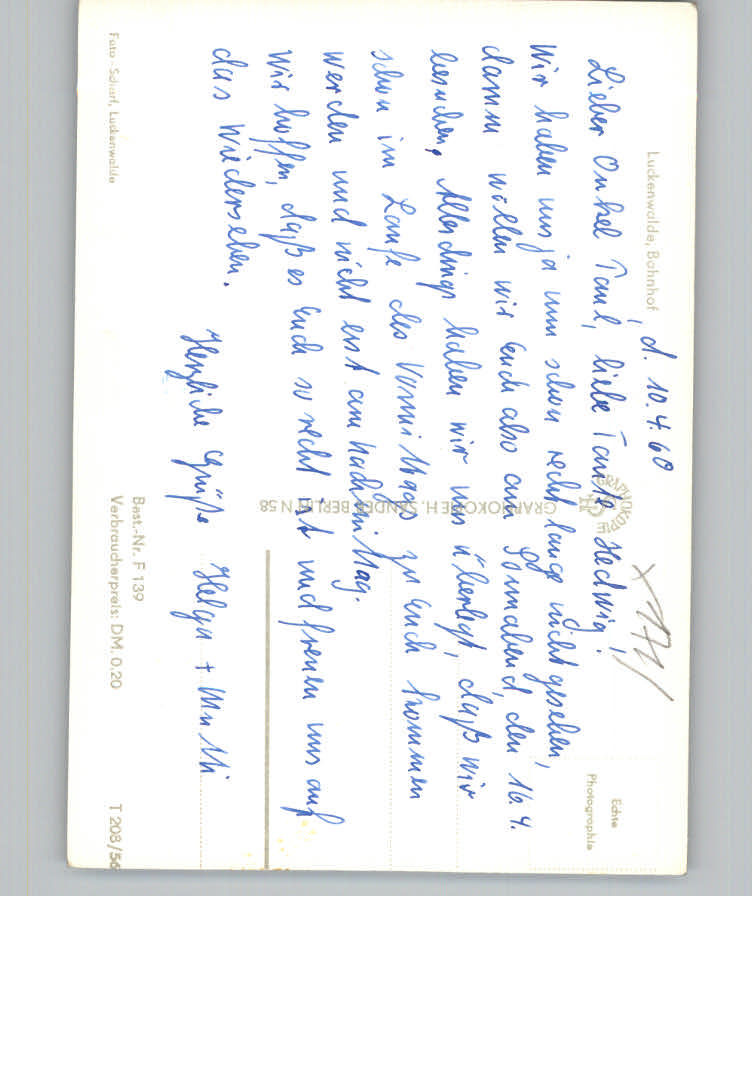 Luckenwalde, Bahnhof
, d. 10.4.60
Lieber Onkel Paul, liebe Tante Hedwig!
Wir haben uns ja nun schon recht lange nicht gesehen,
darum wollen wir Euch also am Sonnabend, den 16.4.
besuchen. Allerdings haben wir uns überlegt, daß wir
schon im Laufe des Vormittags zu Euch kommen
werden und nicht erst am Nachmittag.
Wir hoffen, daß es Euch so recht ist und freuen uns auf
das Wiedersehen.
Herzliche Grüße Helga + Mutti
Echte
Photographie
GRAPHOKOPIE
GRAPHOKOPIE H. SANDER BERLIN N 58
Foto-Scharf, Luckenwalde
Best.-Nr. F 139
Verbraucherpreis: DM. 0.20
T 208/56